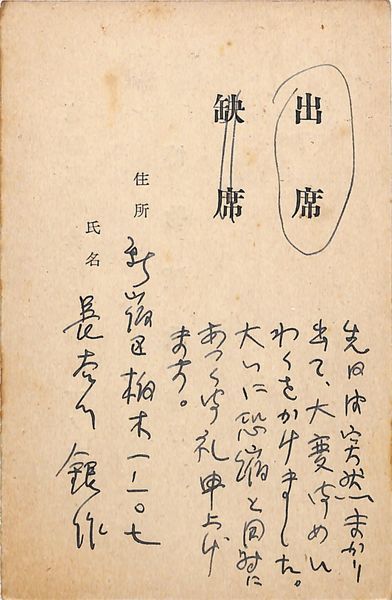 出席
缺席
先日は突然まかり
出て、大変御めい
わくをかけました。
大いに恐縮と同時に
あつく御礼申上げ
ます。
住所 新宿区柏木一ノ一〇七
氏名 長谷川銀作